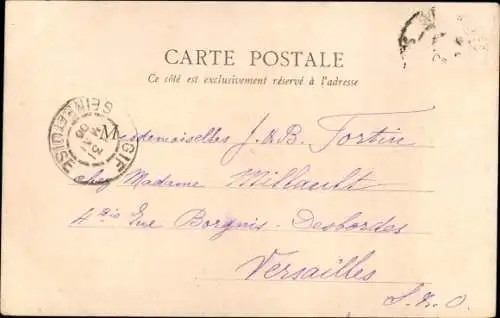 CARTE POSTALE
Ce côté est exclusivement réservé à l'adresse
GIF
SEINE-ET-OISE
31
Mademoiselles J. & B. Fortin
chez Madame Millault
4 bis Rue Borgnis-Desbordes
Versailles
S. & O.